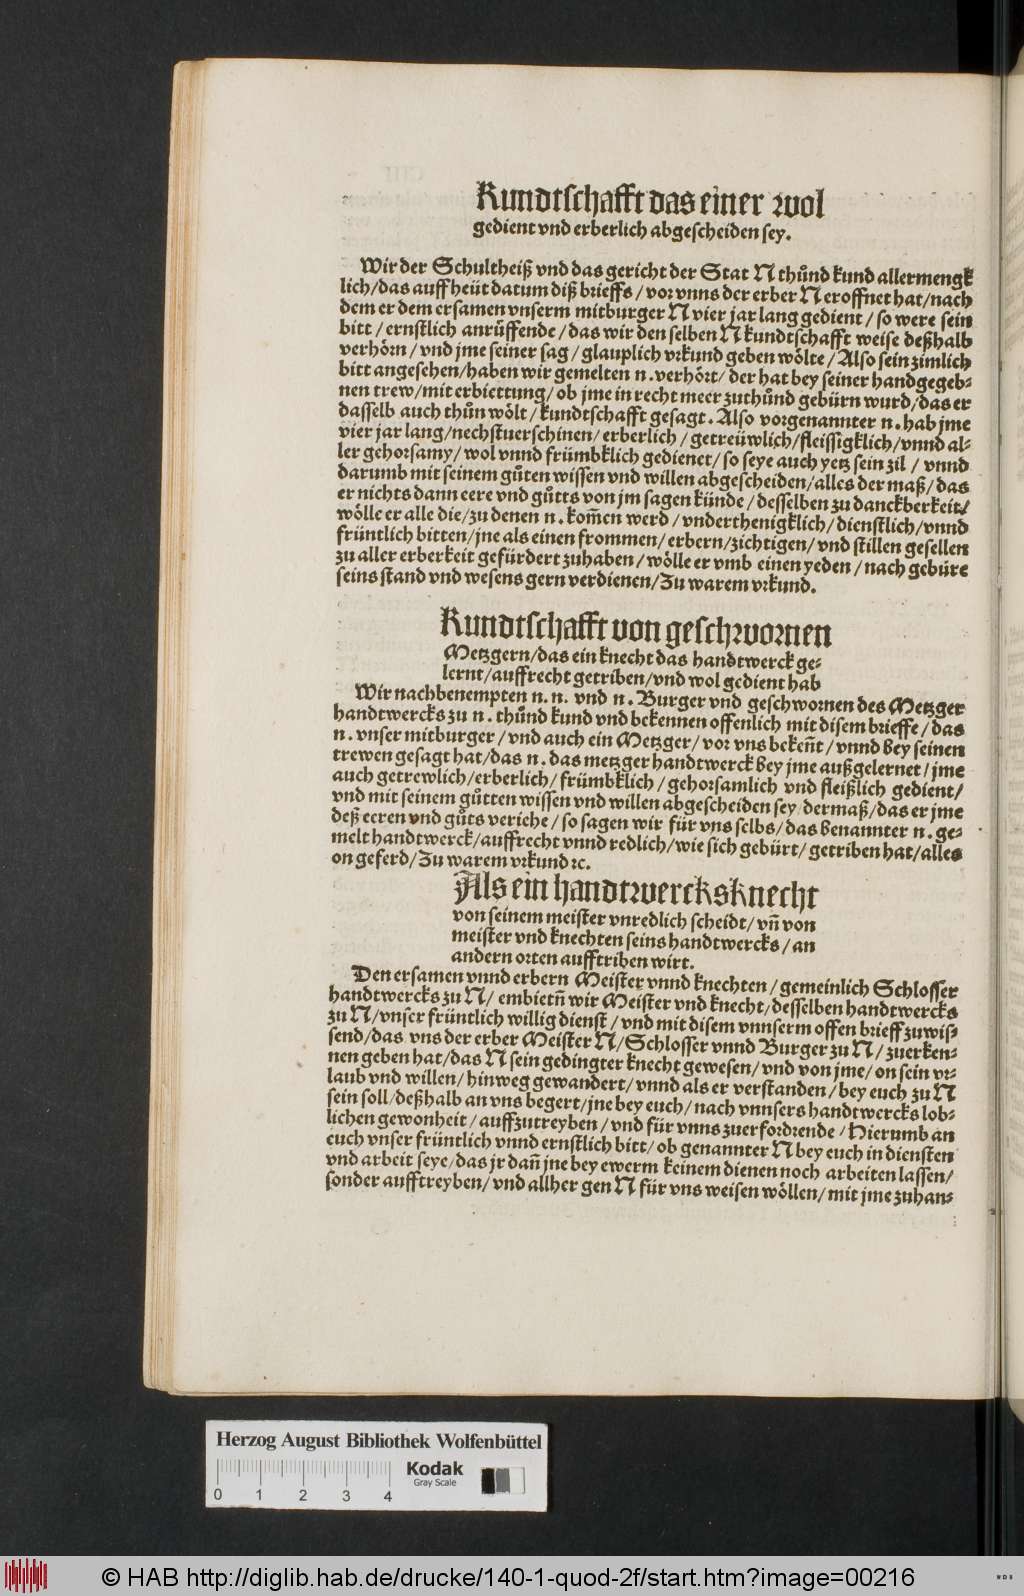 Kundtschafft das einer wol
gedient vnd erberlich abgescheiden sey.
Wir der Schultheiß vnd das gericht der Stat N thůnd kund allermengk
lich/das auff heüt datum diß brieffs / vor vnns der erber N eroffnet hat/nach
dem er dem ersamen vnserm mitburger N vier jar lang gedient / so were sein
bitt / ernstlich anrůffende / das wir den selben N kundtschafft weise deßhalb
verhörn / vnd jme seiner sag / glauplich vrkund geben wölte / Also sein zimlich
bitt angesehen/haben wir gemelten n. verhört/ der hat bey seiner handgegeb⸗
nen trew/mit erbiettung/ ob jme in recht meer zuthůnd gebürn wurd/das er
dasselb auch thůn wölt/ kundtschafft gesagt. Also vorgenannter n. hab jme
vier jar lang/nechstuerschinen/ erberlich / getreüwlich/fleissigklich/vnnd al⸗
ler gehorsamy/ wol vnnd frümbklich gedienet/ so seye auch yetz sein zil / vnnd
darumb mit seinem gůten wissen vnd willen abgescheiden/alles der maß/ das
er nichts dann eere vnd gůtts von jm sagen künde / desselben zu danckberkeit/
wölle er alle die/zu denen n. kom̃en werd / vnderthenigklich/ dienstlich/vnnd
früntlich bitten/jne als einen frommen/ erbern/zichtigen/ vnd stillen gesellen
zu aller erberkeit gefürdert zuhaben/ wölle er vmb einen yeden / nach gebüre
seins stand vnd wesens gern verdienen/Zu warem vrkund.
Kundtschafft von geschwornen
Metzgern/das ein knecht das handtwerck ge⸗
lernt/auffrecht getriben/vnd wol gedient hab
Wir nachbenempten n. n. vnd n. Burger vnd geschwornen des Metzger
handtwercks zu n. thůnd kund vnd bekennen offenlich mit disem brieffe / das
n. vnser mitburger / vnd auch ein Metzger/ vor vns bekeñt / vnnd bey seinen
trewen gesagt hat/das n. das metzger handtwerck bey jme außgelernet/ jme
auch getrewlich/erberlich/ frümbklich / gehorsamlich vnd fleißlich gedient/
vnd mit seinem gůtten wissen vnd willen abgescheiden sey/dermaß/das er jme
deß eeren vnd gůts veriehe / so sagen wir für vns selbs/das benannter n. ge⸗
melt handtwerck/auffrecht vnnd redlich/wie sich gebürt/ getriben hat/alles
on geferd/Zu warem vrkund ꝛc.
Als ein handtwercksknecht
von seinem meister vnredlich scheidt/ vñ von
meister vnd knechten seins handtwercks/ an
andern orten aufftriben wirt.
Den ersamen vnnd erbern Meister vnnd knechten/ gemeinlich Schlosser
handtwercks zu N/ embietñ wir Meister vnd knecht/desselben handtwercks
zu N/vnser früntlich willig dienst / vnd mit disem vnnserm offen brieff zuwis⸗
send/das vns der erber Meister N/Schlosser vnnd Burger zu N/ zuerken⸗
nen geben hat/das N sein gedingter knecht gewesen/ vnd von jme/ on sein vr⸗
laub vnd willen/ hinweg gewandert/ vnnd als er verstanden/ bey euch zu N
sein soll/deßhalb an vns begert/jne bey euch/ nach vnnsers handtwercks lob⸗
lichen gewonheit / auffzutreyben/ vnd für vnns zuerfordrende / Hierumb an
euch vnser früntlich vnnd ernstlich bitt/ ob genannter N bey euch in diensten
vnd arbeit seye/das jr dañ jne bey ewerm keinem dienen noch arbeiten lassen/
sonder aufftreyben/ vnd allher gen N für vns weisen wöllen/ mit jme zuhan⸗
Herzog August Bibliothek Wolfenbüttel
Kodak
Gray Scale
0 1 2 3 4
© HAB http://diglib.hab.de/drucke/140-1-quod-2f/start.htm?image=00216